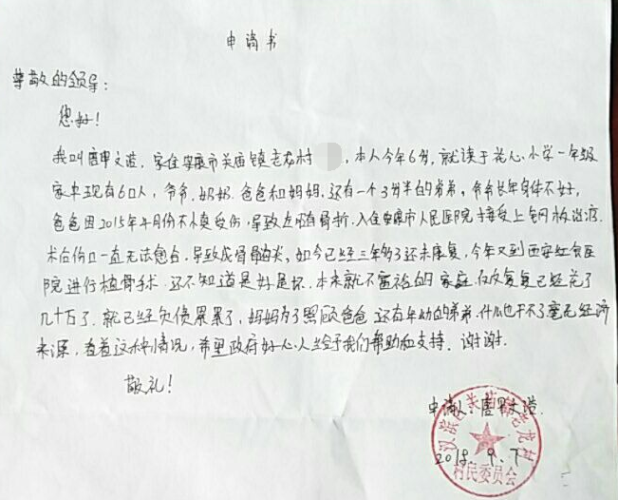 申请书
尊敬的领导：
您好！
我叫唐甲文浩，家住安康市关庙镇老龙村，本人今年6岁，就读于花心小学一年级
家中现有6口人，爷爷，奶奶，爸爸和妈妈，还有一个3岁半的弟弟，爷爷长年身体不好，
爸爸因2015年4月份不慎受伤，导致左腿骨折，入住安康市人民医院接受上钢板治疗，
术后伤口一直无法愈合，导致成骨髓炎，如今已经三年多了还未康复，今年又到西安红会医
院进行植骨手术，还不知道是好是坏，本来就不富裕的家庭反反复复已经花了
几十万了，就已经负债累累了，妈妈为了照顾爸爸还有年幼的弟弟，什么也干不了毫无经济
来源，看着这种情况，希望政府好心人士给予我们帮助和支持，谢谢。
敬礼！
申请人：唐甲文浩
2018.9.7
汉滨区关庙镇老龙村
村民委员会